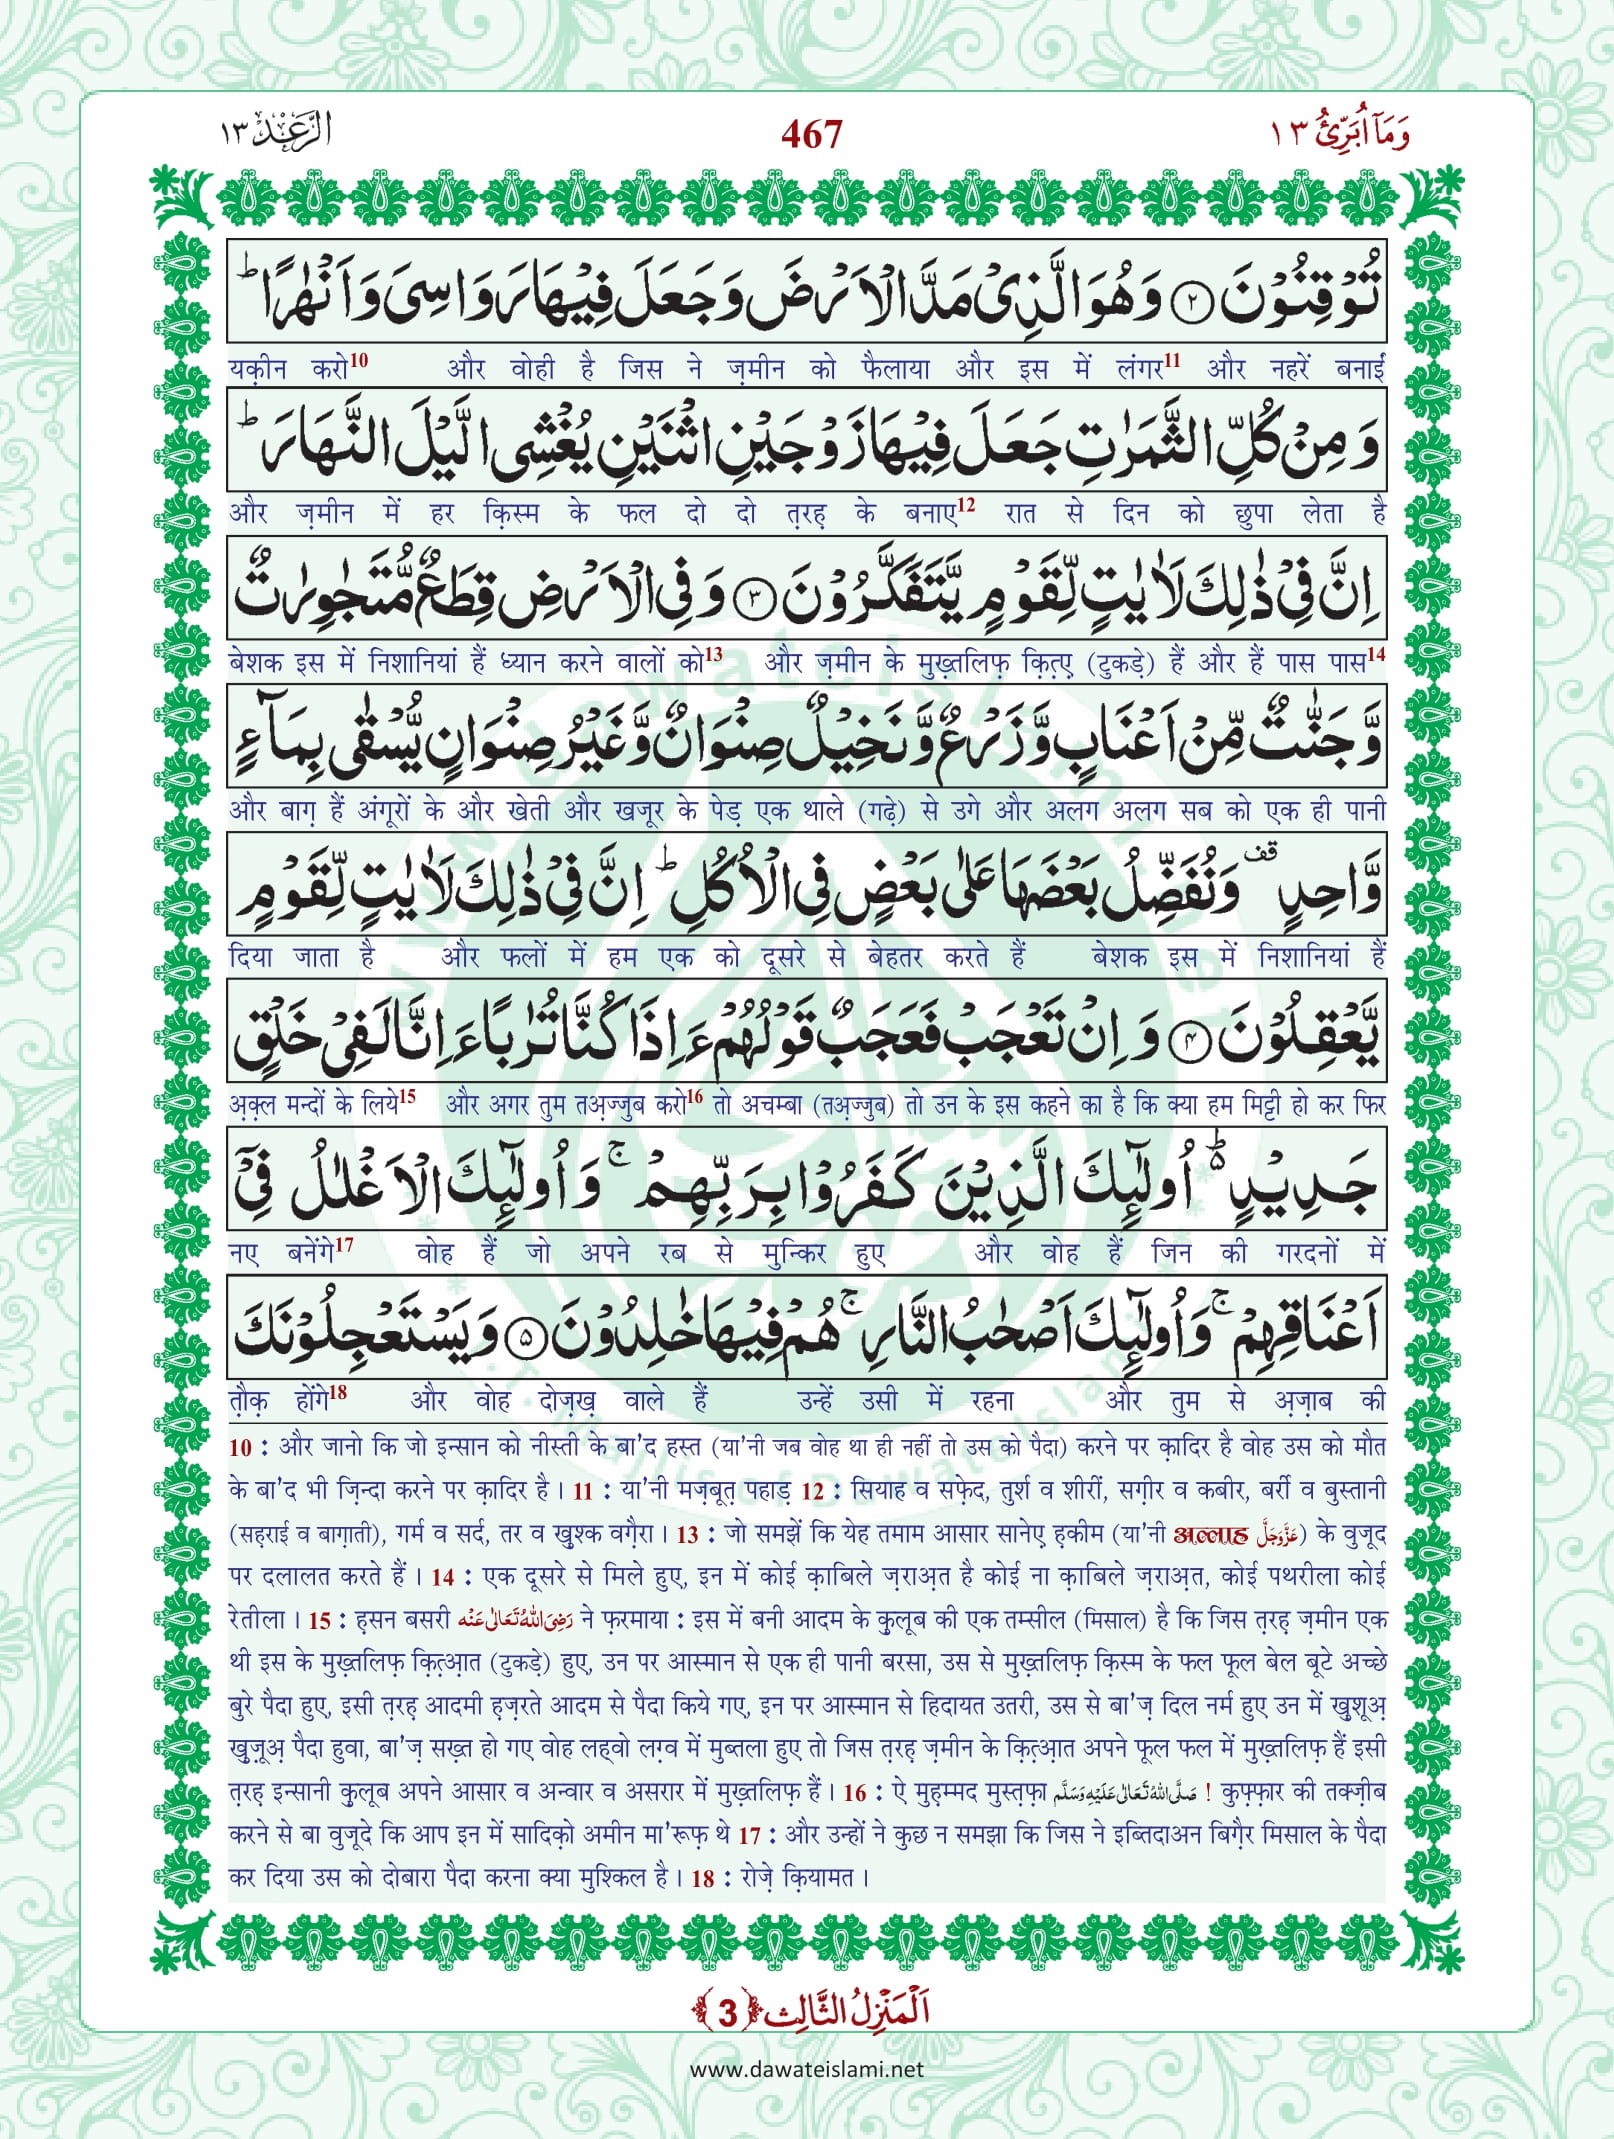 وَمَاۤ اُبَرِّئُ ١٣
467
الرَّعْد ١٣
تُوْقِنُوْنَ ﴿۲﴾ وَهُوَ الَّذِیْ مَدَّ الْاَرْضَ وَجَعَلَ فِیْهَا رَوَاسِیَ وَاَنْهٰرًا ؕ
यक़ीन करो10 और वोही है जिस ने ज़मीन को फैलाया और इस में लंगर11 और नहरें बनाईं
وَمِنْ كُلِّ الثَّمَرٰتِ جَعَلَ فِیْهَا زَوْجَیْنِ اثْنَیْنِ یُغْشِی الَّیْلَ النَّهَارَ ؕ
और ज़मीन में हर क़िस्म के फल दो दो त़रह़ के बनाए12 रात से दिन को छुपा लेता है
اِنَّ فِیْ ذٰلِكَ لَاٰیٰتٍ لِّقَوْمٍ یَّتَفَكَّرُوْنَ ﴿۳﴾ وَفِی الْاَرْضِ قِطَعٌ مُّتَجٰوِرٰتٌ
बेशक इस में निशानियां हैं ध्यान करने वालों को13 और ज़मीन के मुख़्तलिफ़ क़ित़्ए़ (टुकड़े) हैं और हैं पास पास14
وَّجَنّٰتٌ مِّنْ اَعْنَابٍ وَّزَرْعٌ وَّنَخِیْلٌ صِنْوَانٌ وَّغَیْرُ صِنْوَانٍ یُّسْقٰی بِمَآءٍ
और बाग़ हैं अंगूरों के और खेती और खजूर के पेड़ एक थाले (गढ़े) से उगे और अलग अलग सब को एक ही पानी
وَّاحِدٍ ۫ وَنُفَضِّلُ بَعْضَهَا عَلٰی بَعْضٍ فِی الْاُكُلِ ؕ اِنَّ فِیْ ذٰلِكَ لَاٰیٰتٍ لِّقَوْمٍ
दिया जाता है और फलों में हम एक को दूसरे से बेहतर करते हैं बेशक इस में निशानियां हैं
یَّعْقِلُوْنَ ﴿۴﴾ وَاِنْ تَعْجَبْ فَعَجَبٌ قَوْلُهُمْ ءَاِذَا كُنَّا تُرٰبًا ءَاِنَّا لَفِیْ خَلْقٍ
अ़क़्ल मन्दों के लिये15 और अगर तुम तअ़ज्जुब करो16 तो अचम्बा (तअ़ज्जुब) तो उन के इस कहने का है कि क्या हम मिट्टी हो कर फिर
جَدِیْدٍ ؕ۬ اُولٰٓئِكَ الَّذِیْنَ كَفَرُوْا بِرَبِّهِمْ ۚ وَاُولٰٓئِكَ الْاَغْلٰلُ فِیْۤ
नए बनेंगे17 वोह हैं जो अपने रब से मुन्किर हुए और वोह हैं जिन की गरदनों में
اَعْنَاقِهِمْ ۚ وَاُولٰٓئِكَ اَصْحٰبُ النَّارِ ۚ هُمْ فِیْهَا خٰلِدُوْنَ ﴿۵﴾ وَیَسْتَعْجِلُوْنَكَ
त़ौक़ होंगे18 और वोह दोज़ख़ वाले हैं उन्हें उसी में रहना और तुम से अ़ज़ाब की
10 : और जानो कि जो इन्सान को नीस्ती के बा'द हस्त (या'नी जब वोह था ही नहीं तो उस को पैदा) करने पर क़ादिर है वोह उस को मौत
के बा'द भी ज़िन्दा करने पर क़ादिर है। 11 : या'नी मज़बूत़ पहाड़ 12 : सियाह व सफ़ेद, तुर्श व शीरीं, सग़ीर व कबीर, बर्री व बुस्तानी
(सह़राई व बाग़ाती), गर्म व सर्द, तर व ख़ुश्क वग़ैरा। 13 : जो समझें कि येह तमाम आसार सानेए़ ह़कीम (या'नी अल्लाह عَزَّوَجَلَّ) के वुजूद
पर दलालत करते हैं। 14 : एक दूसरे से मिले हुए, इन में कोई क़ाबिले ज़राअ़त है कोई ना क़ाबिले ज़राअ़त, कोई पथरीला कोई
रेतीला। 15 : ह़सन बसरी رَضِیَ اللهُ تَعَالٰی عَنْه ने फ़रमाया : इस में बनी आदम के क़ुलूब की एक तम्सील (मिसाल) है कि जिस त़रह़ ज़मीन एक
थी इस के मुख़्तलिफ़ क़ित़्आ़त (टुकड़े) हुए, उन पर आस्मान से एक ही पानी बरसा, उस से मुख़्तलिफ़ क़िस्म के फल फूल बेल बूटे अच्छे
बुरे पैदा हुए, इसी त़रह़ आदमी ह़ज़रते आदम से पैदा किये गए, इन पर आस्मान से हिदायत उतरी, उस से बा'ज़ दिल नर्म हुए उन में ख़ुशूअ़
ख़ुज़ूअ़ पैदा हुवा, बा'ज़ सख़्त हो गए वोह लह्वो लग़्व में मुब्तला हुए तो जिस त़रह़ ज़मीन के क़ित़्आ़त अपने फूल फल में मुख़्तलिफ़ हैं इसी
त़रह़ इन्सानी क़ुलूब अपने आसार व अन्वार व असरार में मुख़्तलिफ़ हैं। 16 : ऐ मुह़म्मद मुस्त़फ़ा صَلَّی اللهُ تَعَالٰی عَلَیْهِ وَسَلَّم ! कुफ़्फ़ार की तक्ज़ीब
करने से बा वुजूदे कि आप इन में सादिक़ो अमीन मा'रूफ़ थे 17 : और उन्हों ने कुछ न समझा कि जिस ने इब्तिदाअन बिग़ैर मिसाल के पैदा
कर दिया उस को दोबारा पैदा करना क्या मुश्किल है। 18 : रोज़े क़ियामत।
اَلْمَنْزِلُ الثَّالِث ﴿3﴾
www.dawateislami.net